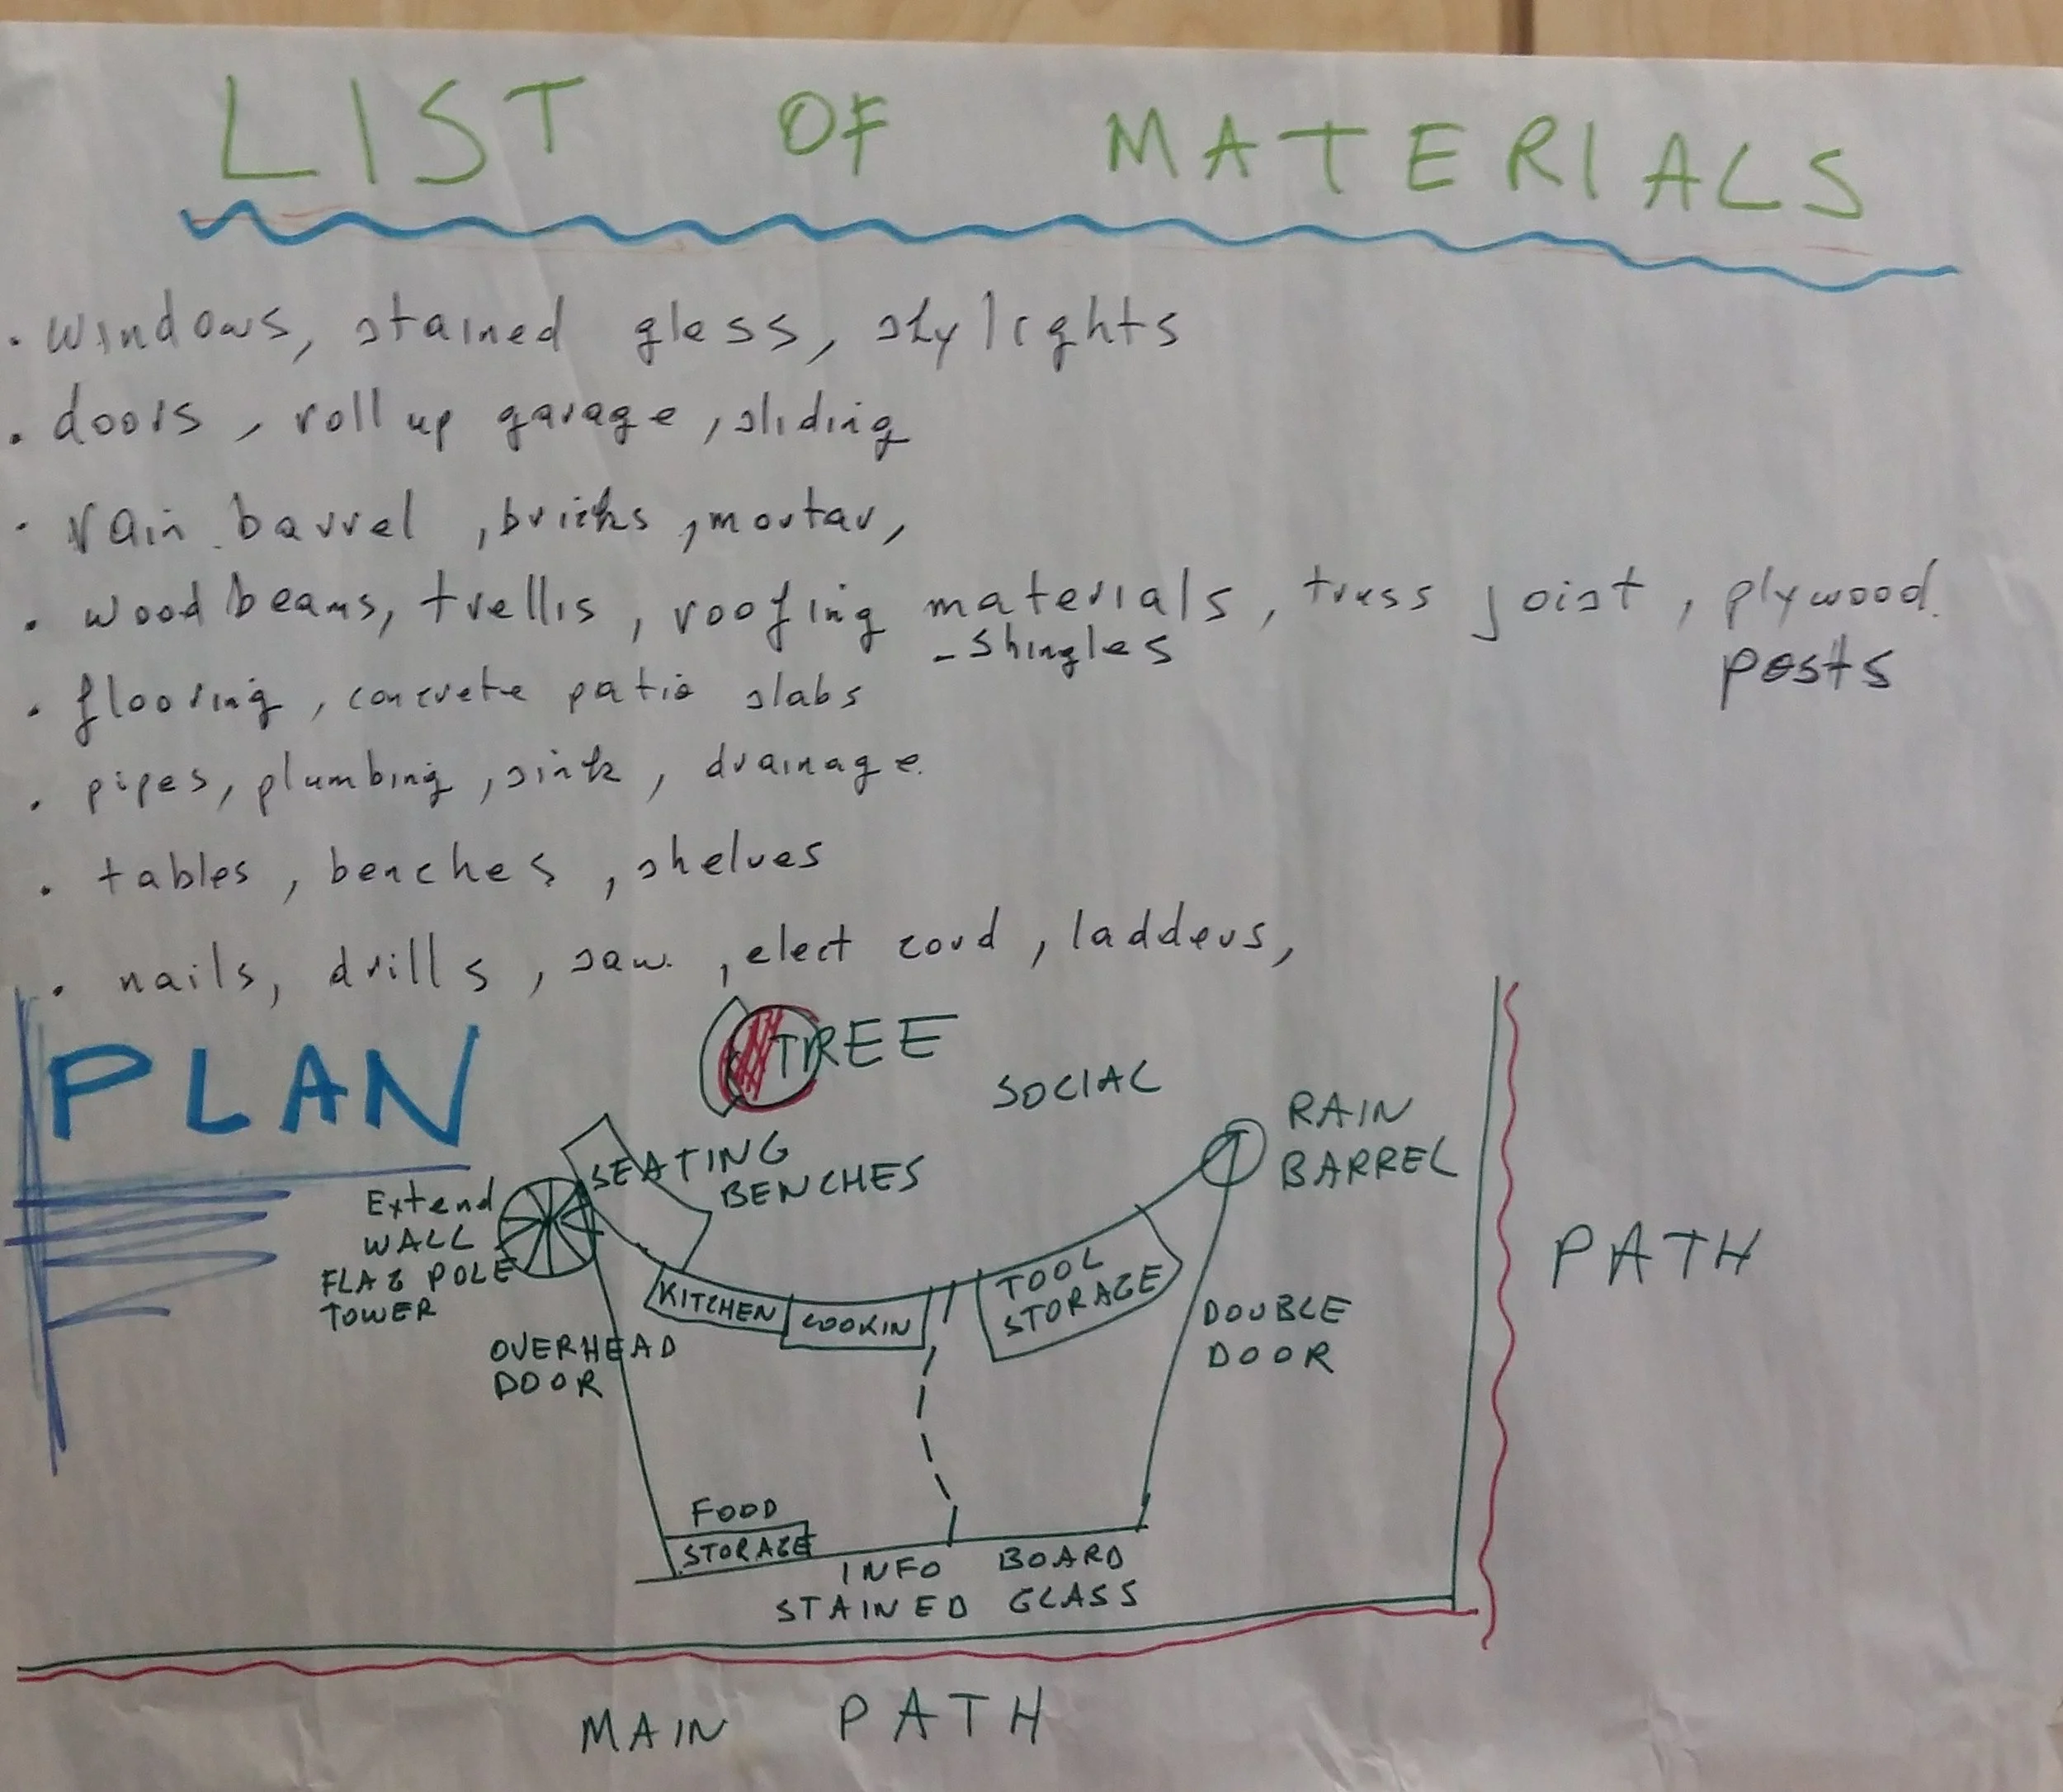 LIST OF MATERIALS
. windows, stained glass, skylights
. doors, roll up garage, sliding
. rain barrel, bricks, mortar,
. wood beams, trellis, roofing materials, truss joist, plywood.
- shingles
posts
. flooring, concrete patio slabs
. pipes, plumbing, sink, drainage.
. tables, benches, shelves
. nails, drills, saw, elect cord, ladders,
PLAN
TREE
SOCIAL
RAIN
BARREL
SEATING
BENCHES
Extend
WALL
FLAG POLE
TOWER
KITCHEN
COOKIN
TOOL
STORAGE
PATH
OVERHEAD
DOOR
DOUBLE
DOOR
FOOD
STORAGE
INFO BOARD
STAINED GLASS
MAIN PATH